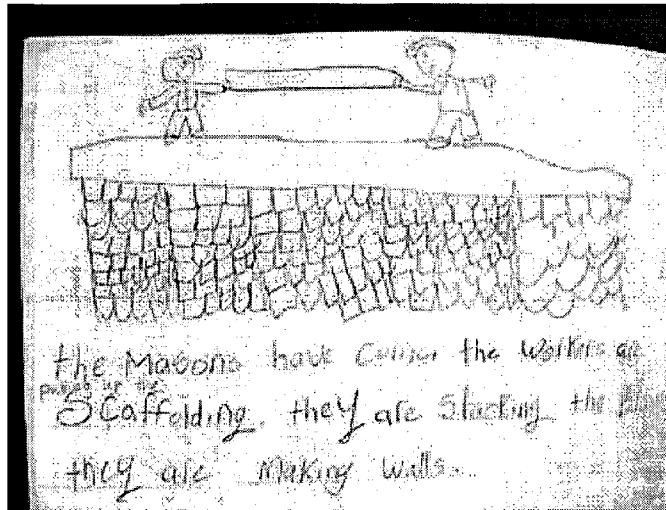 the Masons have come. the workers are
putting up the
Scaffolding. they are Stacking the
they are Making walls.